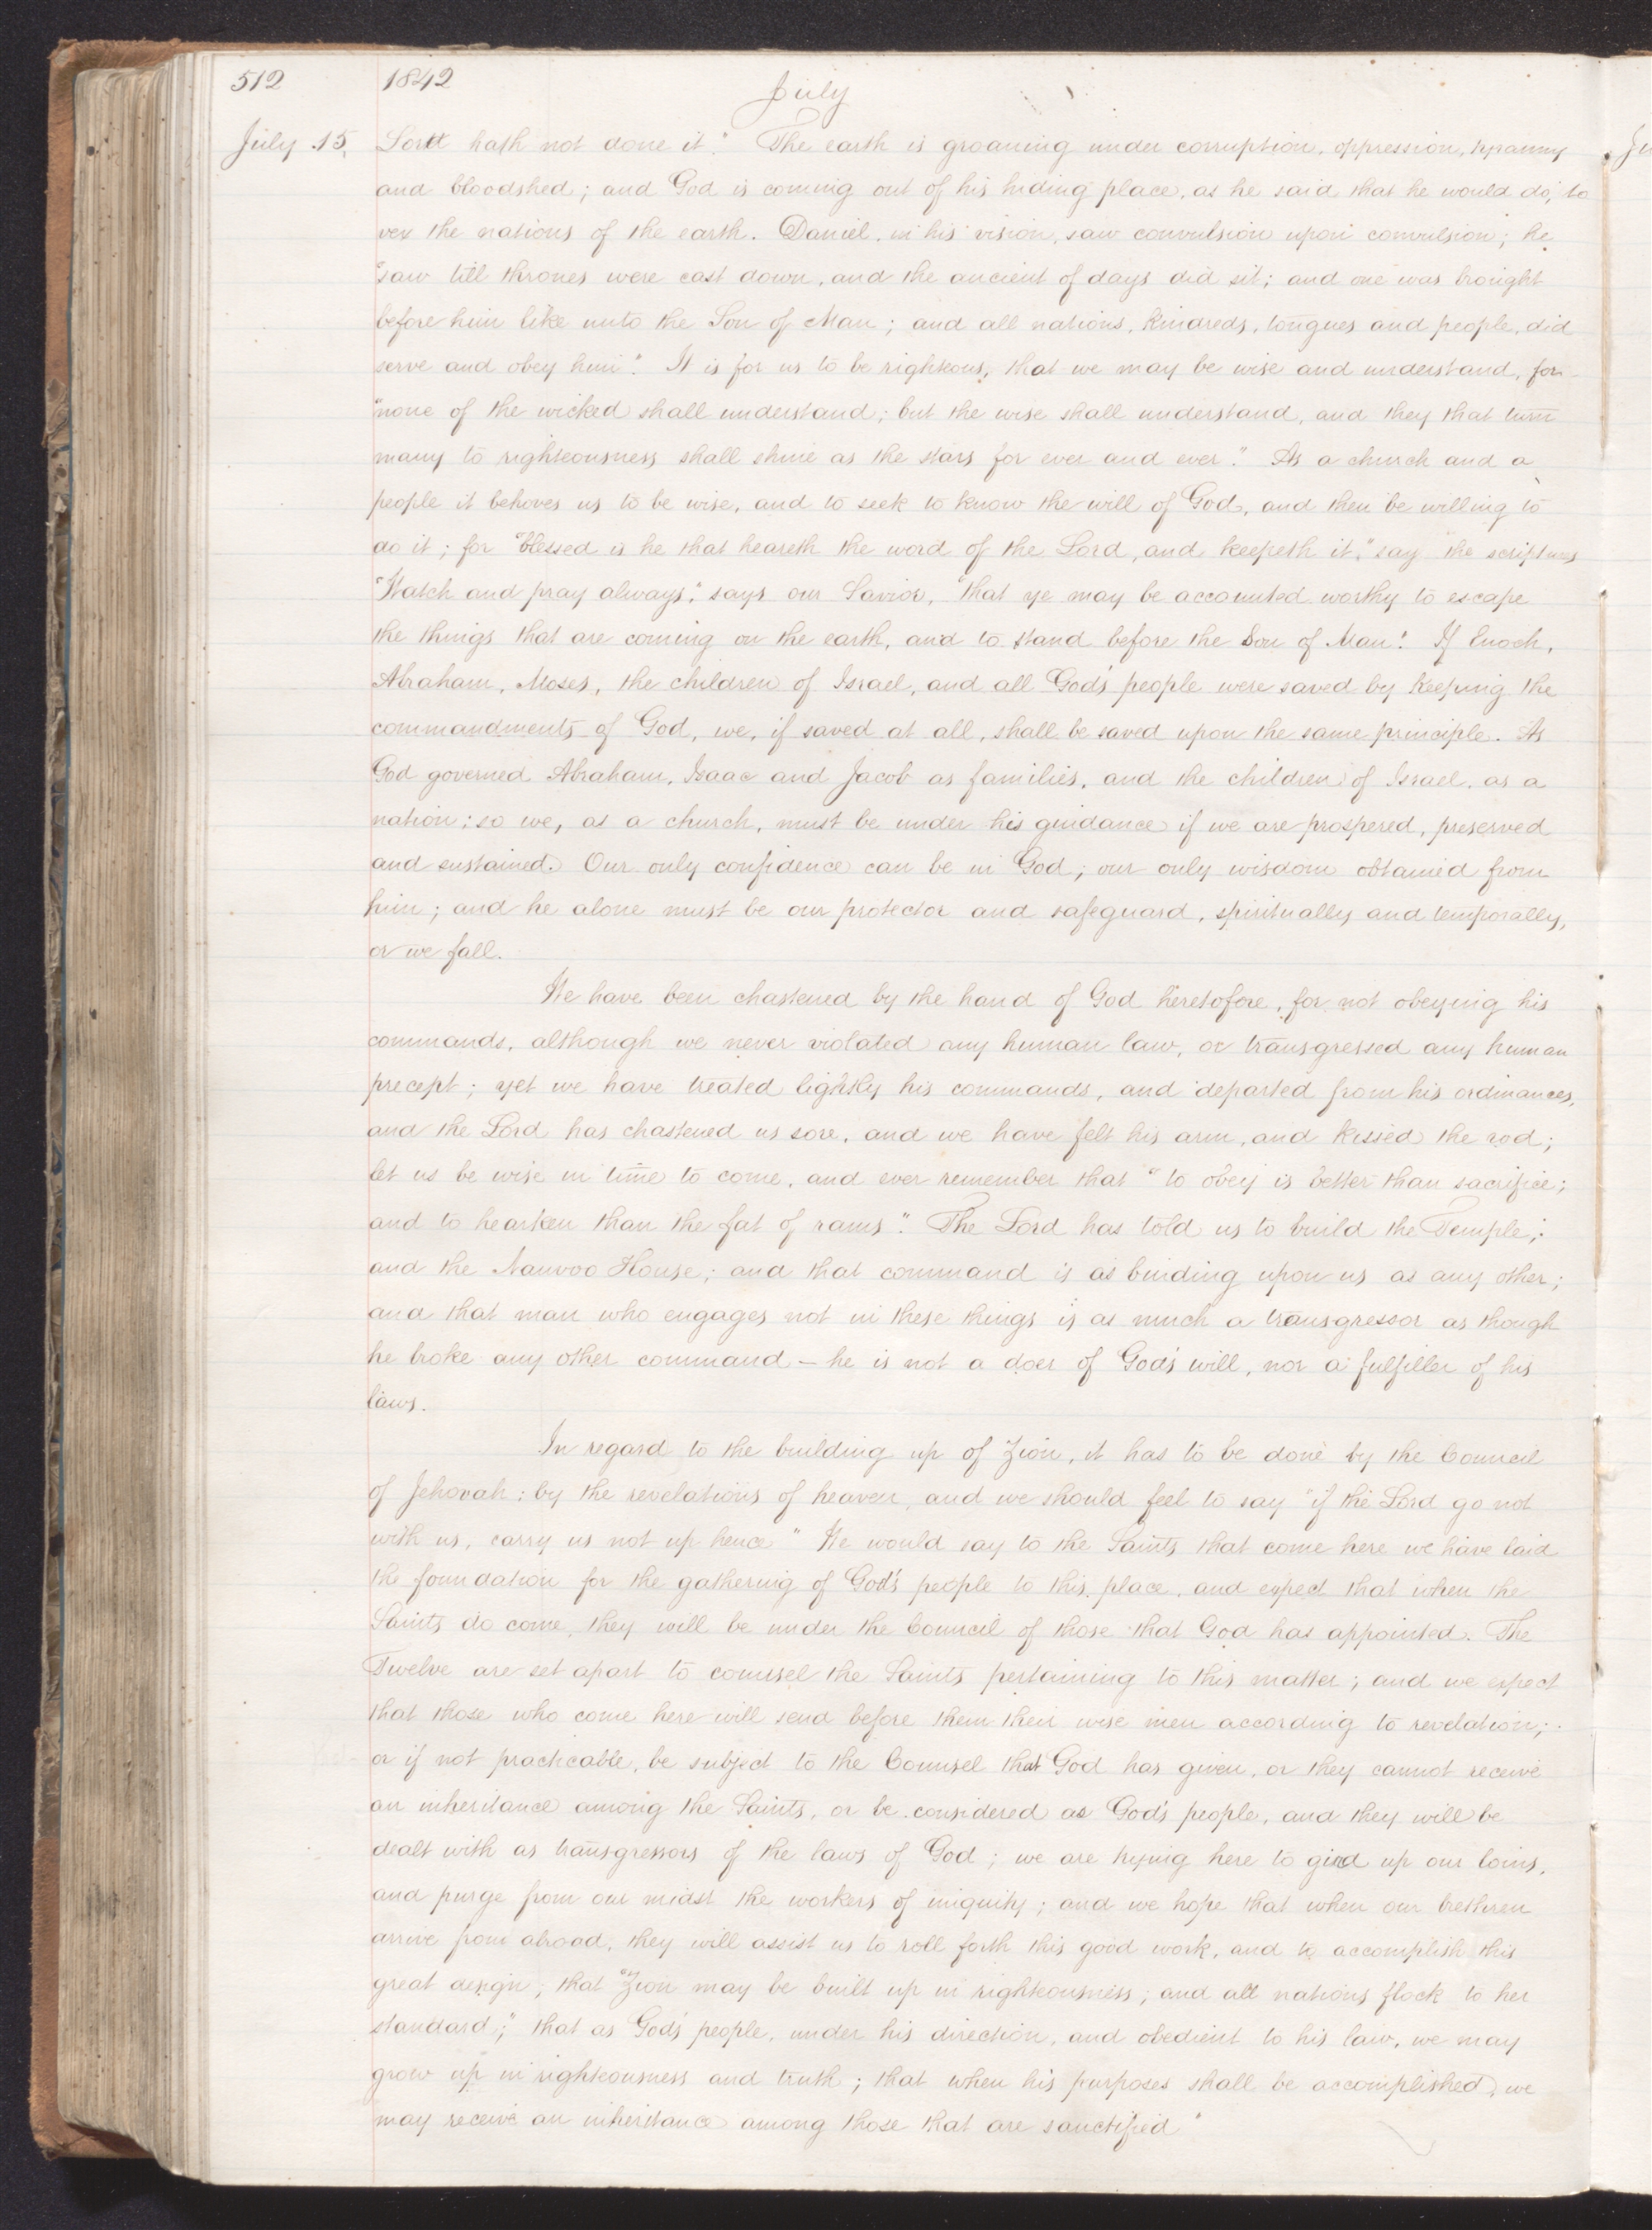 512 1842 July
July 15. Lord hath not done it." The earth is groaning under corruption, oppression, tyranny
and bloodshed; and God is coming out of his hiding place, as he said that he would do, to
vex the nations of the earth. Daniel, in his vision, saw convulsion upon convulsion; he
"saw till thrones were cast down, and the ancient of days did sit; and one was brought
before him like unto the Son of Man; and all nations, kindreds, tongues and people, did
serve and obey him". It is for us to be righteous, that we may be wise and understand, for
"none of the wicked shall understand; but the wise shall understand, and they that turn
many to righteousness shall shine as the stars for ever and ever." As a church and a
people it behoves us to be wise, and to seek to know the will of God, and then be willing to
do it; for "blessed is he that heareth the word of the Lord, and keepeth it," say the scriptures
"Watch and pray always," says our Savior, "that ye may be accounted worthy to escape
the things that are coming on the earth, and to stand before the Son of Man." If Enoch,
Abraham, Moses, the children of Israel, and all God's people were saved by keeping the
commandments of God, we, if saved at all, shall be saved upon the same principle. As
God governed Abraham, Isaac and Jacob as families, and the children of Israel, as a
nation; so we, as a church, must be under his guidance if we are prospered, preserved
and sustained. Our only confidence can be in God; our only wisdom obtained from
him; and he alone must be our protector and safeguard, spiritually and temporally,
or we fall.
We have been chastened by the hand of God heretofore, for not obeying his
commands, although we never violated any human law, or transgressed any human
precept; yet we have treated lightly his commands, and departed from his ordinances,
and the Lord has chastened us sore, and we have felt his arm, and kissed the rod;
let us be wise in time to come, and ever remember that "to obey is better than sacrifice;
and to hearken than the fat of rams". The Lord has told us to build the Temple;
and the Nauvoo House; and that command is as binding upon us as any other;
and that man who engages not in these things is as much a transgressor as though
he broke any other command — he is not a doer of God's will, nor a fulfiller of his
laws.
In regard to the building up of Zion, it has to be done by the Council
of Jehovah; by the revelations of heaven, and we should feel to say "if the Lord go not
with us, carry us not up hence" We would say to the Saints that come here we have laid
the foundation for the gathering of God's people to this place, and expect that when the
Saints do come, they will be under the Council of those that God has appointed. The
Twelve are set apart to counsel the Saints pertaining to this matter; and we expect
that those who come here will send before them their wise men according to revelation;
or if not practicable, be subject to the Counsel that God has given, or they cannot receive
an inheritance among the Saints, or be considered as God's people, and they will be
dealt with as transgressors of the laws of God; we are trying here to gird up our loins,
and purge from our midst the workers of iniquity; and we hope that when our brethren
arrive from abroad, they will assist us to roll forth this good work, and to accomplish this
great design; that "Zion may be built up in righteousness; and all nations flock to her
standard;" that as God's people, under his direction, and obedient to his law, we may
grow up in righteousness and truth; that when his purposes shall be accomplished, we
may receive an inheritance among those that are sanctified"